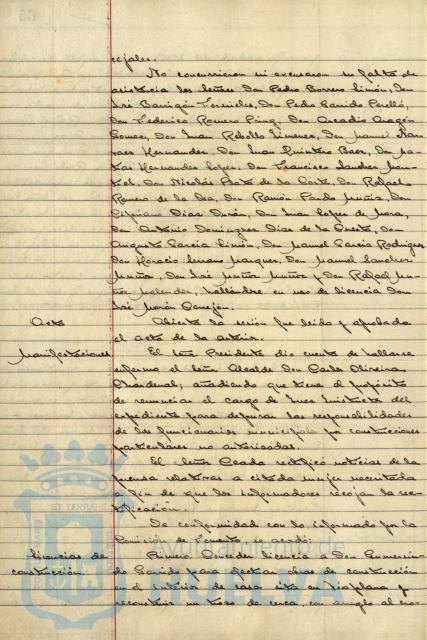 cejales.
No concurrieron ni excusaron su falta de
asistencia los señores Don Pedro Borrero Limón, Don
José Barrigón Fornieles, Don Pedro Garrido Perelló,
Don Federico Romero Pérez, Don Arcadio Aragón
Gómez, Don Juan Rebollo Jimenez, Don Manuel Nar-
vaez Hernandez, Don Juan Quintero Baez, Don Ma-
tías Hernandez López, Don Francisco Sanchez Mon-
tel, Don Nicolás Prats de la Corte, Don Rafael
Romero de la Osa, Don Ramón Pardo Muñiz, Don
Cipriano Dias Durán, Don Juan López de Mora,
Don Antonio Dominguez Dias de la Puesta, Don
Augusto Garcia Limón, Don Manuel García Rodriguez
Don Horacio Serrano Marquez, Don Manuel Sanchez
Muñoz, Don José Muñoz Muñoz y Don Rafael Mu-
ñoz, hallándose en uso de licencia Don
José Morón
Acta
Abierta la sesión fue leida y aprobada
el acta de la anterior.
Manifestaciones
El señor Presidente dió cuenta de hallarse
enfermo el señor Alcalde Don Carlos Oliveira
Chardenal; añadiendo que tiene el propósito
de renunciar el cargo de Juez Instructor del
expediente para depurar las responsabilidades
de los funcionarios municipales por construcciones
particulares no autorizadas.
El señor rectificó noticias de la
prensa relativas a citada mujer necesitada
a fin de que los informadores recojan la rec-
tificación.
De conformidad con lo informado por la
Comisión de Fomento, se acordó:
Licencias de
construcción.
Primero. Conceder licencia a Don Gumersin-
do Garrido para efectuar obras de construcción
en el interior de casa sita en y
reconstruir un trozo de cerca, con arreglo al cro-